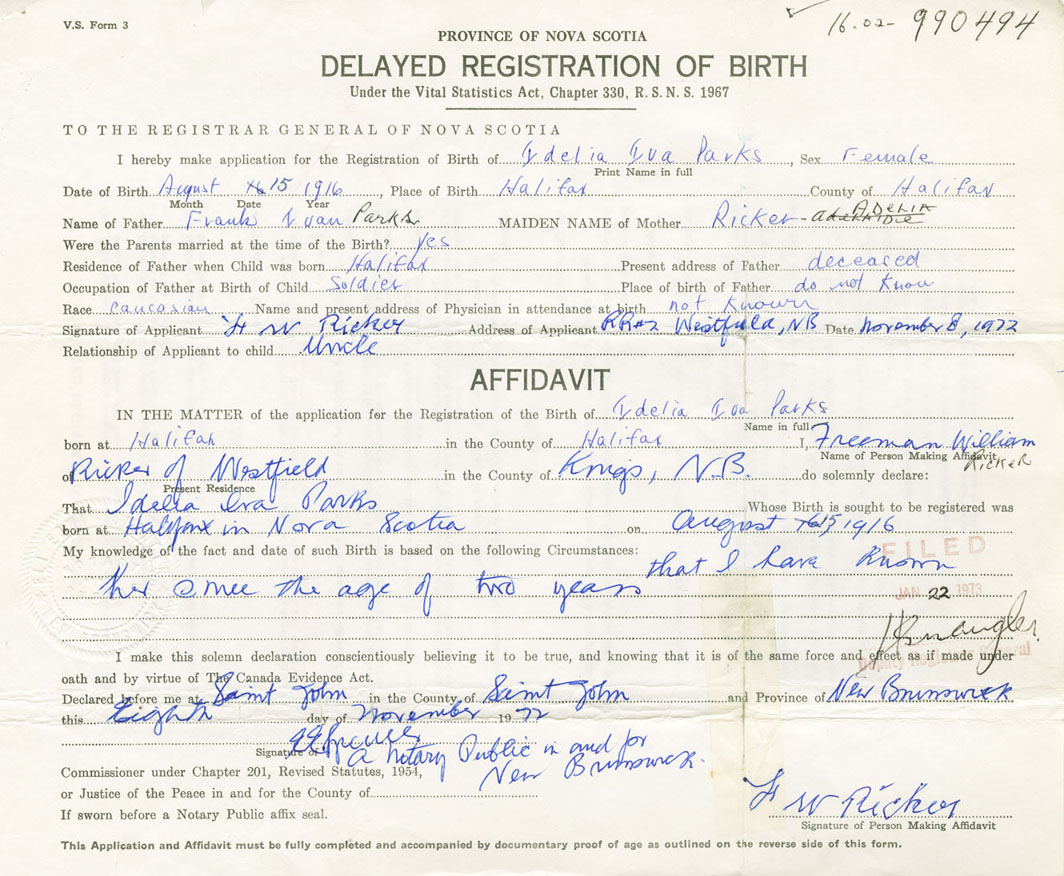 V.S. Form 3
16-02- 990494
PROVINCE OF NOVA SCOTIA
DELAYED REGISTRATION OF BIRTH
Under the Vital Statistics Act, Chapter 330, R. S. N. S. 1967
TO THE REGISTRAR GENERAL OF NOVA SCOTIA
I hereby make application for the Registration of Birth of Idelia Iva Parks, Sex Female
Print Name in full
Date of Birth August 15 1916, Place of Birth Halifax County of Halifax
Month Date Year
Name of Father Frank Ivan Parks MAIDEN NAME of Mother Ricker - ADELIA
Were the Parents married at the time of the Birth? yes
Residence of Father when Child was born Halifax Present address of Father deceased
Occupation of Father at Birth of Child Soldier Place of birth of Father do not know
Race caucasian Name and present address of Physician in attendance at birth not known
Signature of Applicant F W Ricker Address of Applicant RR#2 Westfield, NB Date November 8, 1972
Relationship of Applicant to child Uncle
AFFIDAVIT
IN THE MATTER of the application for the Registration of the Birth of Idelia Iva Parks
Name in full
born at Halifax in the County of Halifax I, Freeman William
Name of Person Making Affidavit
Ricker
of Ricker of Westfield in the County of Kings, N.B. do solemnly declare:
Present Residence
That Idelia Iva Parks Whose Birth is sought to be registered was
born at Halifax in Nova Scotia on August 15, 1916
My knowledge of the fact and date of such Birth is based on the following Circumstances:
that I have known
her since the age of two years
FILED
JAN 22 1973
Deputy Registrar General
I make this solemn declaration conscientiously believing it to be true, and knowing that it is of the same force and effect as if made under
oath and by virtue of The Canada Evidence Act.
Declared before me at Saint John in the County of Saint John and Province of New Brunswick
this Eighth day of November 1972
Signature of
A Notary Public in and for
New Brunswick.
Commissioner under Chapter 201, Revised Statutes, 1954,
or Justice of the Peace in and for the County of
If sworn before a Notary Public affix seal.
F W Ricker
Signature of Person Making Affidavit
This Application and Affidavit must be fully completed and accompanied by documentary proof of age as outlined on the reverse side of this form.